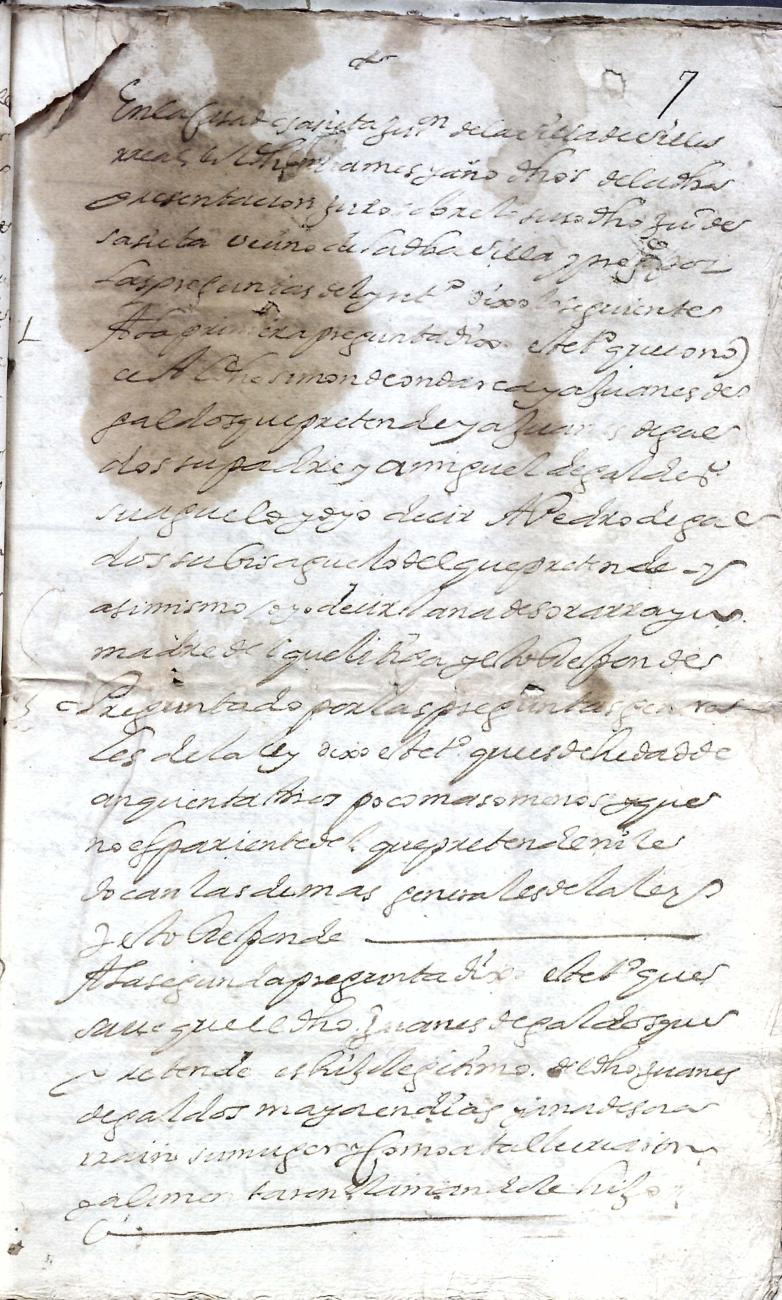 7
En la Casa de sasieta de la villa de villa
rreal el dho mes y año dhos de la dha
presentacion juro sobre lo suso dho Juº de
sasieta vecino de la dha villa y preg por
las preguntas del ynt.º dixo lo seguiente
A la primera pregunta dixo este tº que cono
ce Al dho simon de condarca y a Juanes de
galdos que pretende y a Juanes de gal
dos su padre y a miguel de galdos
su aguelo y oyo decir A Pedro de gal
dos su bisaguelo del que pretende y
asimismo oyo decir a ana de
madre del que litiga y esto Responde
Preguntado por las preguntas genera
les de la ley dixo este tº que es de hedad de
cinquenta años poco mas o menos y que
no es pariente del que pretende ni le
tocan las demas generales de la ley
y esto Responde
A la segunda pregunta dixo este tº que
saue que el dho Juanes de galdos que
pretende es hijo legitimo del dho Juanes
de galdos mayor en dias y ana de
su muger y Como a tal le criaron
y alimentaron llamandole hijo